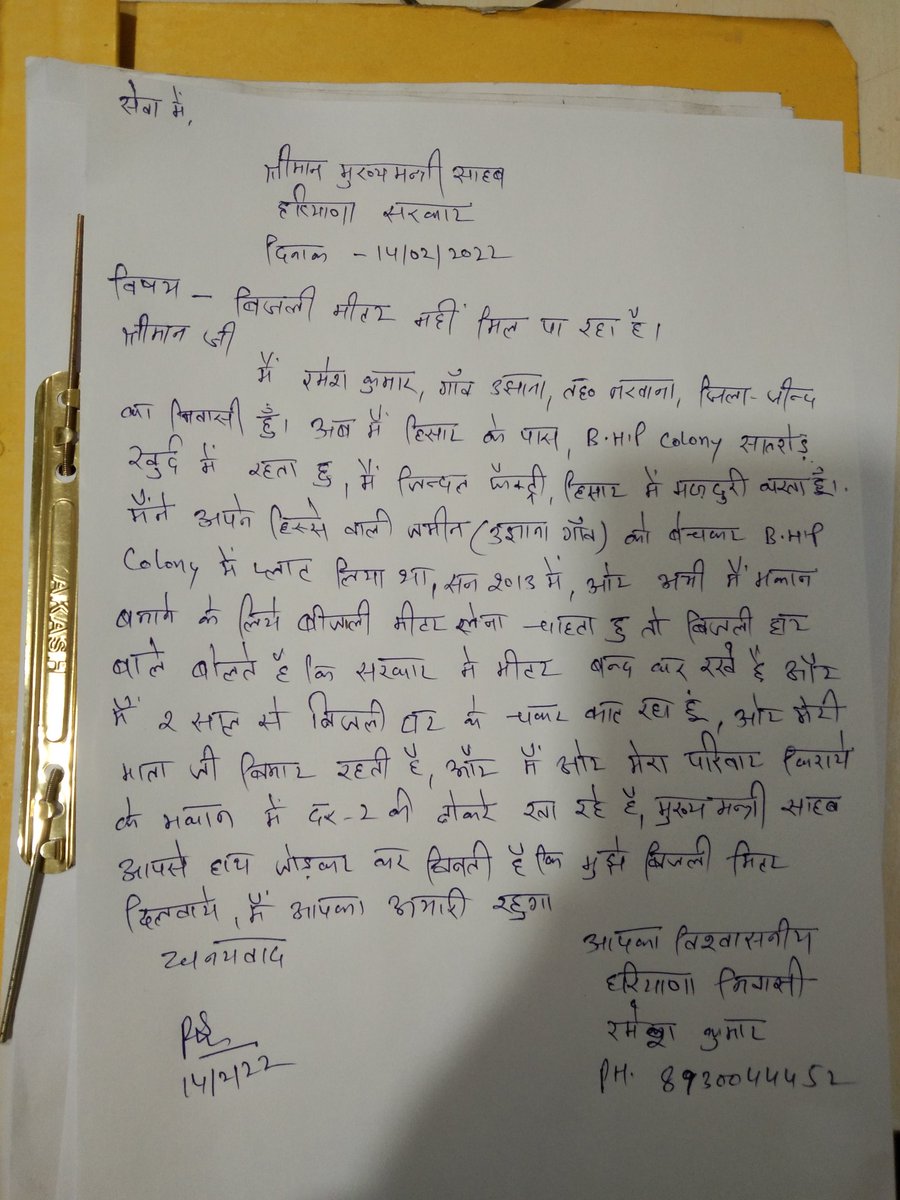 सेवा में,
श्रीमान मुख्यमन्त्री साहब
हरियाणा सरकार
दिनाक - 14/02/2022
विषय - बिजली मीटर नहीं मिल पा रहा है।
श्रीमान जी
मैं रमेश कुमार, गाँव उझाना, तह० नरवाना, जिला- जीन्द
का निवासी हुँ। अब मैं हिसार के पास, B.H.P Colony सातरोड़
खुर्द में रहता हु, मैं जिन्दल फैक्ट्री, हिसार में मजदुरी करता हुँ।
मैंने अपने हिस्से वाली जमीन (उझाना गाँव) को बेचकर B.H.P
Colony में प्लाट लिया था, सन २०१३ में, ओर अभी मैं मकान
बनाने के लिये बीजाली मीटर लेना चाहता हु तो बिजली घर
वाले बोलते है कि सरकार ने मीटर बन्द कर रखे है और
मैं २ साल से बिजली घर के चकर काट रहा हुं, ओर मेरी
माता जी बिमार रहती है, और मैं ओर मेरा परिवार किराये
के मकान में दर-2 की ठोकरे खा रहे है, मुख्य मन्त्री साहब
आपसे हाथ जोड़कर कर विनती है कि मुझे बिजली मिटर
दिलवाये, मैं आपका अभारी रहुगा
धन्यवाद
आपका विश्वासनीय
हरियाणा निवासी
रमेश कुमार
PH. 8930044452
14/2/22
AKASH